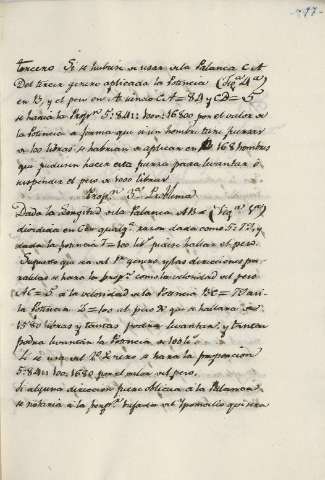 77
tercero. Si se hubiese de usar de la Palanca C A
Del tercer genero aplicada la Potencia (Fig.ª 4.ª)
en B, y el peso en A siendo CA = 84 y CD = 5
se haria la Prop.n 5:84::100:1680 por el valor de
la Potencia de forma que si un hombre tiene fuerza
de 100 libras, se habrian de aplicar en 168 hombres
que pudiesen hacer esta fuerza para levantar ó
suspender el peso de 1000 libras.
Prop.n 3.ª Problema
Dada la Longitud de la Palanca AB (Fig.ª)
dividida en C en qualq.a razon dada como 5:79, y
dada la potencia = 100 lib.s pidese hallar el peso.
Supuesto que sea del p.r genero y las direcciones pa-
ralelas se hará la prop.n como la velocidad del peso
AC = 5 á la velocidad de la Potencia BC = 79 asi
la Potencia = 100 al peso X que se hallará de
1580 libras y tantas podrá levantar, y tantas
podrá levantar la Potencia de 100 lib.s
Si se usa del 2.º Genero se hará la proporcion
5:84::100:1680 por el valor del peso.
Si alguna direccion fuere oblicua á la Palanca
se notaria á la perp.r tirada del Ypomoclio que sera